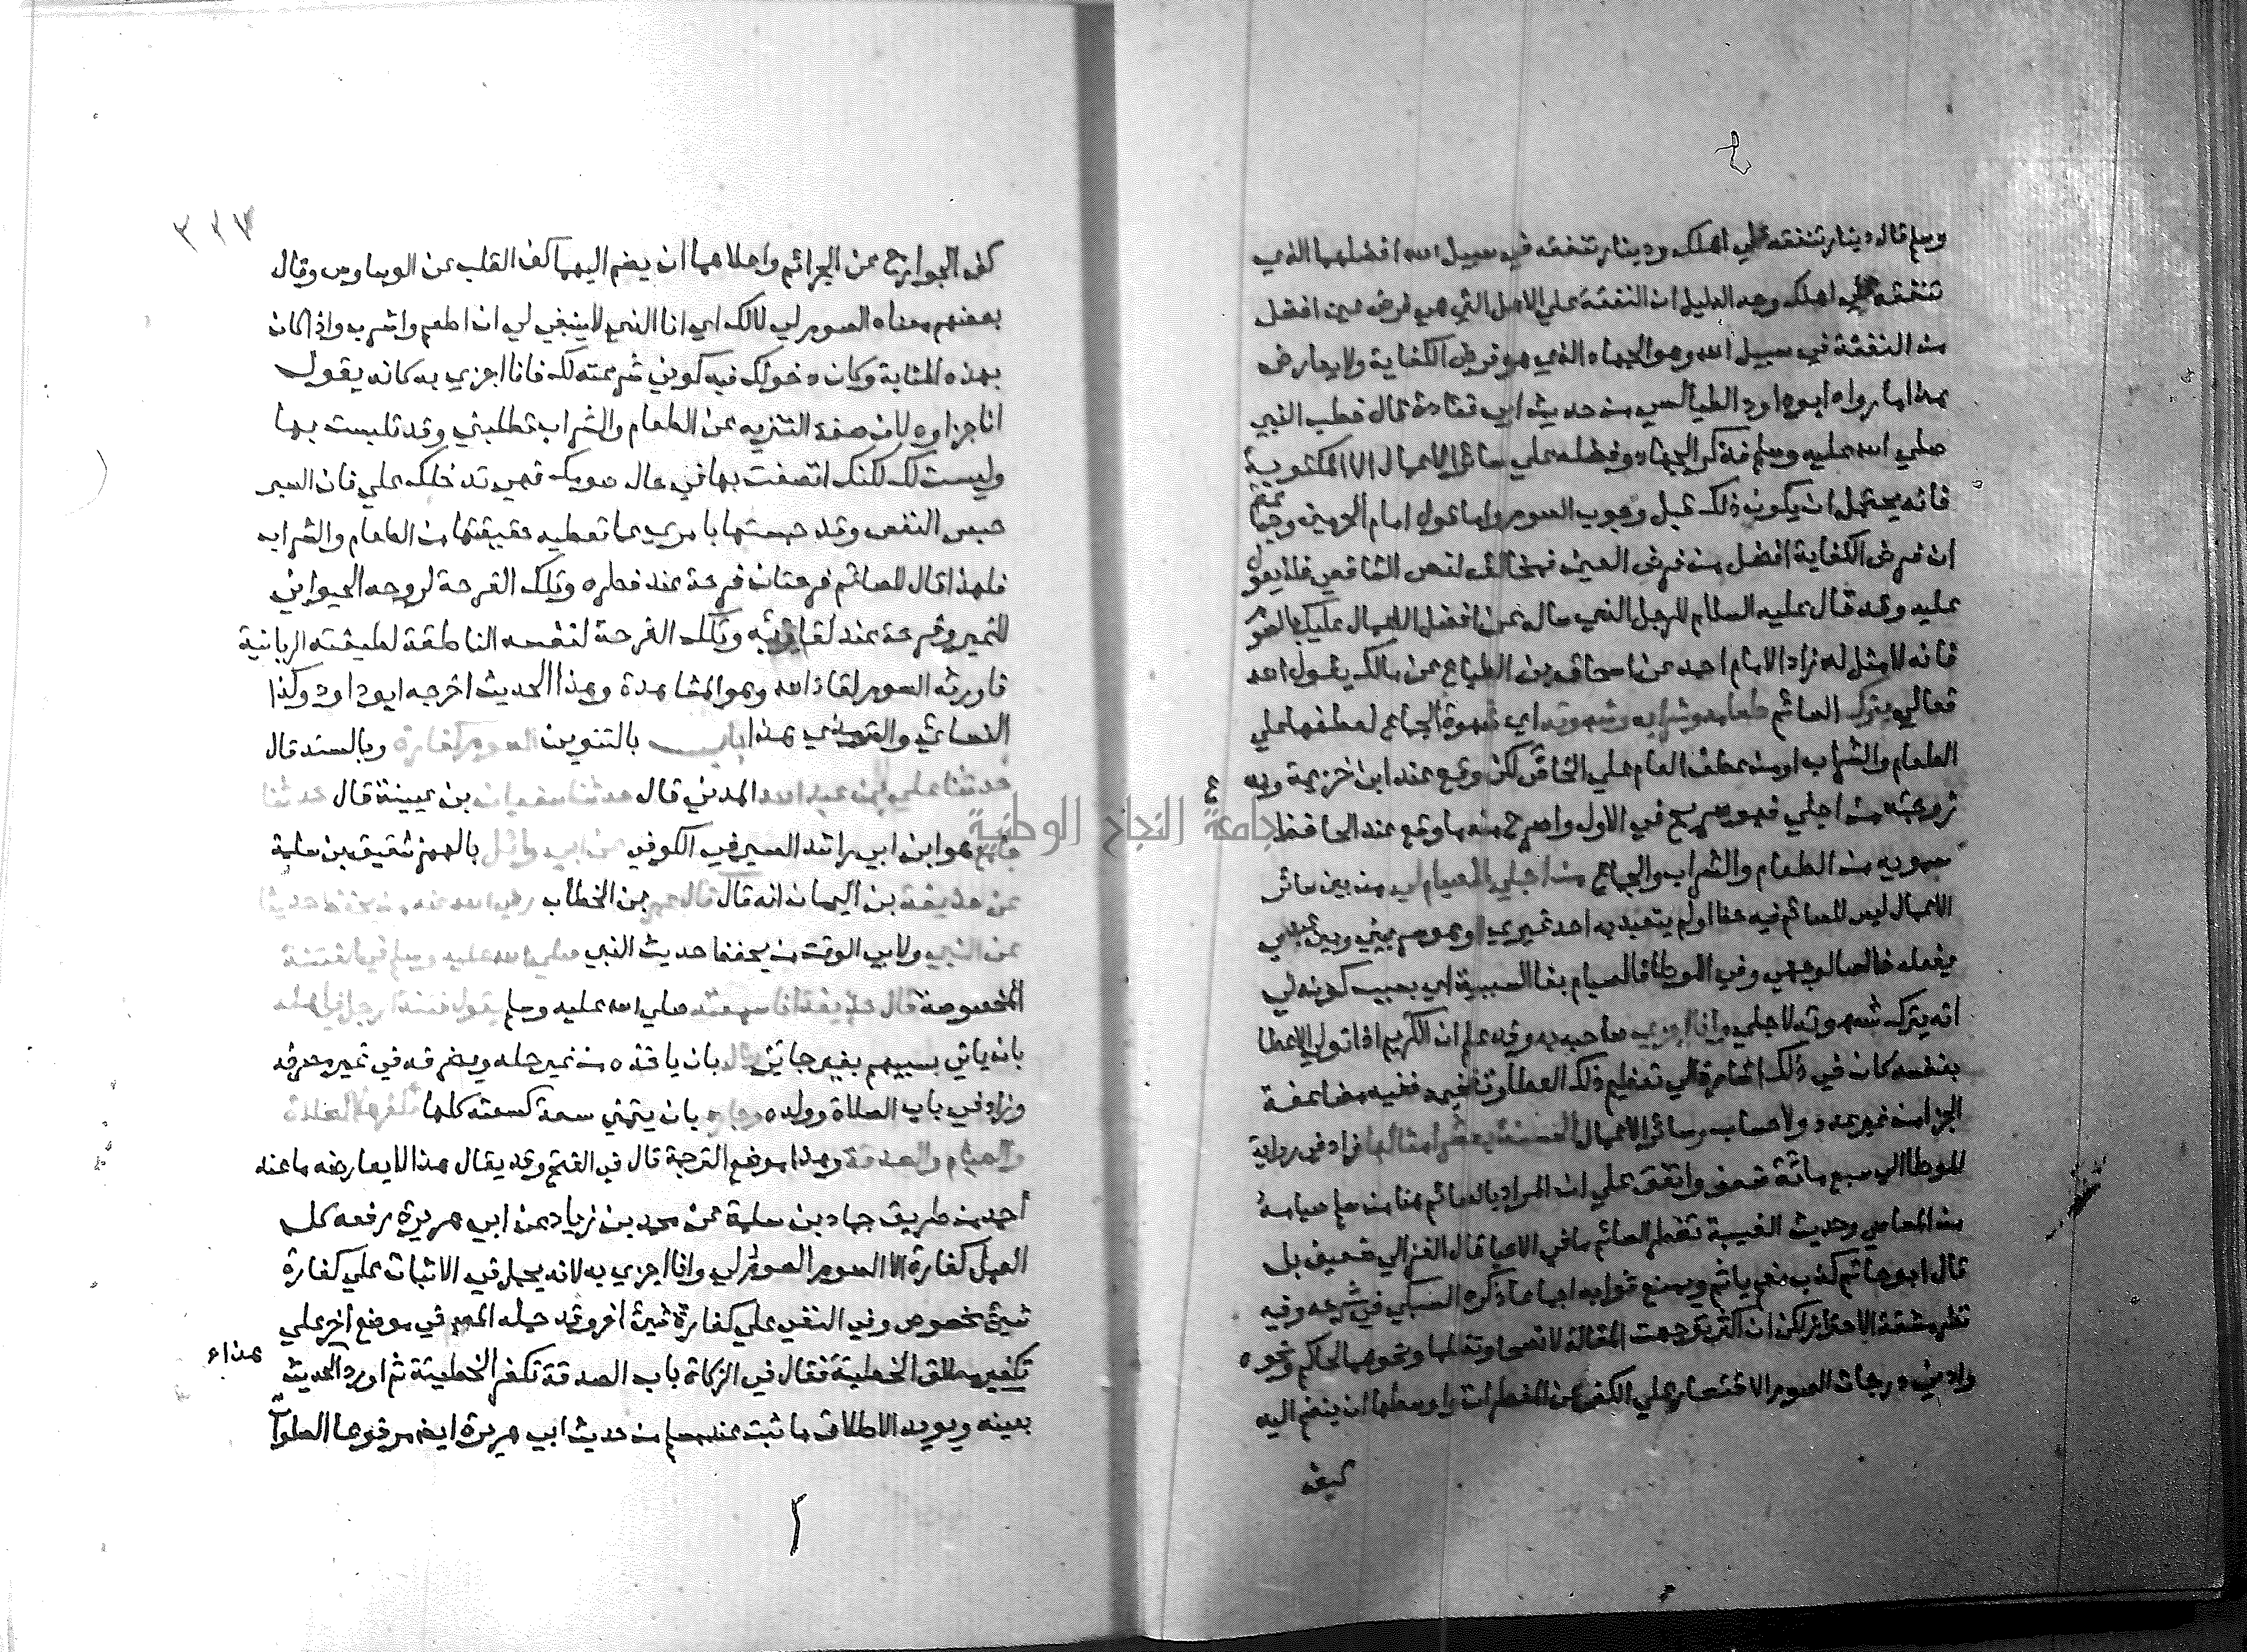 وسلم قال دينار تنفقه علي اهلك ودينار تنفقه في سبيل الله افضلهما الذي
تنفقه علي اهلك وجه الدليل ان النفقة علي الاهل التي هي فرض عين افضل
من النفقة في سبيل الله وهو الجهاد الذي هو فرض الكفاية ولا يعارض
هذا ما رواه ابو داود الطيالسي من حديث ابي قتادة قال خطب النبي
صلي الله عليه وسلم فذكر الجهاد وفضله علي سائر الاعمال الا المكتوبة
فانه يحتمل ان يكون ذلك قبل وجوب الصوم واما قول امام الحرمين وجماعة
ان فرض الكفاية افضل من فرض العين فمخالف لنص الشافعي فلا يعول
عليه وقد قال عليه السلام للرجل الذي ساله عن افضل الاعمال عليك بالصوم
فانه لا مثل له زاد الامام احمد عن اسحاق بن الطباع عن مالك يقول الله
تعالي يترك الصائم طعامه وشرابه وشهوته اي شهوة الجماع لعطفها علي
الطعام والشراب او من عطف العام علي الخاص لكن وقع عند ابن خزيمة ويدع
زوجته من اجلي فهو صريح في الاول واصرح منه ما وقع عند الحافظ
سمويه من الطعام والشراب والجماع من اجلي الصيام لي من بين سائر
الاعمال ليس للصائم فيه حظ او لم يتعبد به احد غيري او هو سر بيني وبين عبدي
يفعله خالصا لوجهي وفي الموطا فالصيام بفا السببية اي بسبب كونه لي
انه يترك شهوته لاجلي وانا اجزي صاحبه به وقد علم ان الكريم اذا تولي الاعطا
بنفسه كان في ذلك اشارة الي تعظيم ذلك العطا وتفخيمه ففيه مضاعفة
الجزا من غير عدد ولا حساب وسائر الاعمال الحسنة بعشر امثالها زاد في رواية
الموطا الي سبع مائة ضعف واتفق علي ان المراد بالصائم هنا من سلم صيامه
من المعاصي وحديث الغيبة تفطر الصائم ما في الاحيا قال الغزالي ضعيف بل
قال ابو حاتم كذب نعم ياثم ويمنع ثوابه اجماعا ذكره السبكي في شرحه وفيه
نظر لمشقة الاحتراز لكن ان اكثر توجهت المقالة لا نصحا وتظلما ونحوهما لحاكم ونحوه
وادني درجات الصوم الاقتصار علي الكف عن المفطرات واوسطها ان ينضم اليه
كيف
٣٢٧
كف الجوارح عن الجرائم واعلاهما ان يضم اليهما كف القلب عن الوساوس وقال
بعضهم معناه الصوم لي لا لك اي انا الذي لا ينبغي لي ان اطعم واشرب واذا كان
بهذه المثابة وكان دخولك فيه كوني شرعته لك فانا اجزي به كانه يقول
انا جزاوه لان صفة التنزيه عن الطعام والشراب تطلبني وقد تلبست بها
وليست لك لكنك اتصفت بها في حال صومك فهي تدخلك علي فان الصبر
حبس النفس وقد حبستها بامري عما تعطيه حقيقتها من الطعام والشراب
فلهذا قال للصائم فرحتان فرحة عند فطره وتلك الفرحة لروحه الحيواني
لا غير وفرحة عند لقا ربه وتلك الفرحة لنفسه الناطقة لطيفته الربانية
فاورثه الصوم لقا الله وهو المشاهدة وهذا الحديث اخرجه ابو داود وكذا
النسائي والترمذي هذا باب بالتنوين الصوم كفارة وبالسند قال
حدثنا علي بن عبد الله المديني قال حدثنا سفيان بن عيينة قال حدثنا
جامع هو ابن ابي راشد الصيرفي الكوفي عن ابي وائل بالهمز شقيق بن سلمة
عن حذيفة بن اليمان انه قال قال عمر بن الخطاب رضي الله عنه من يحفظ حديثا
عن النبي ولابي الوقت من يحفظ حديث النبي صلي الله عليه وسلم في الفتنة
المخصوصة قال حذيفة انا سمعته صلي الله عليه وسلم يقول فتنة الرجل في اهله
بان ياتي بسببهم بغير جائز وماله بان ياخذه من غير حله ويصرفه في غير مصرفه
وزاد في باب الصلاة وولده وجاره بان يتمني سعة كسعته كلها تكفرها الصلاة
والصيام والصدقة وهذا موضع الترجمة قال في الفتح وقد يقال هذا لا يعارضه ما عند
احمد من طريق حماد بن سلمة عن محمد بن زياد عن ابي هريرة رفعه كل
العمل كفارة الا الصوم الصوم لي وانا اجزي به لانه يحمل في الاثبات علي كفارة
شيئ مخصوص وفي النفي علي كفارة شيئ اخر وقد حمله المص في موضع اخر علي
تكفير مطلق الخطية فقال في الزكاة باب الصدقة تكفر الخطيئة ثم اورد الحديث
هذا
بعينه ويويد الاطلاق ما ثبت عند مسلم من حديث ابي هريرة ايضا مرفوعا الصلوات
جامعة النجاح الوطنية